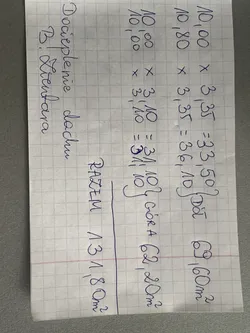 10,00 × 3,35 = 33,50 } Dół 69,60m²
10,80 × 3,35 = 36,10
10,00 × 3,10 = 31,10 } GÓRA 62,20m²
10,00 × 3,10 = 31,10
RAZEM 131,80m²
Docieplenie dachu
B.